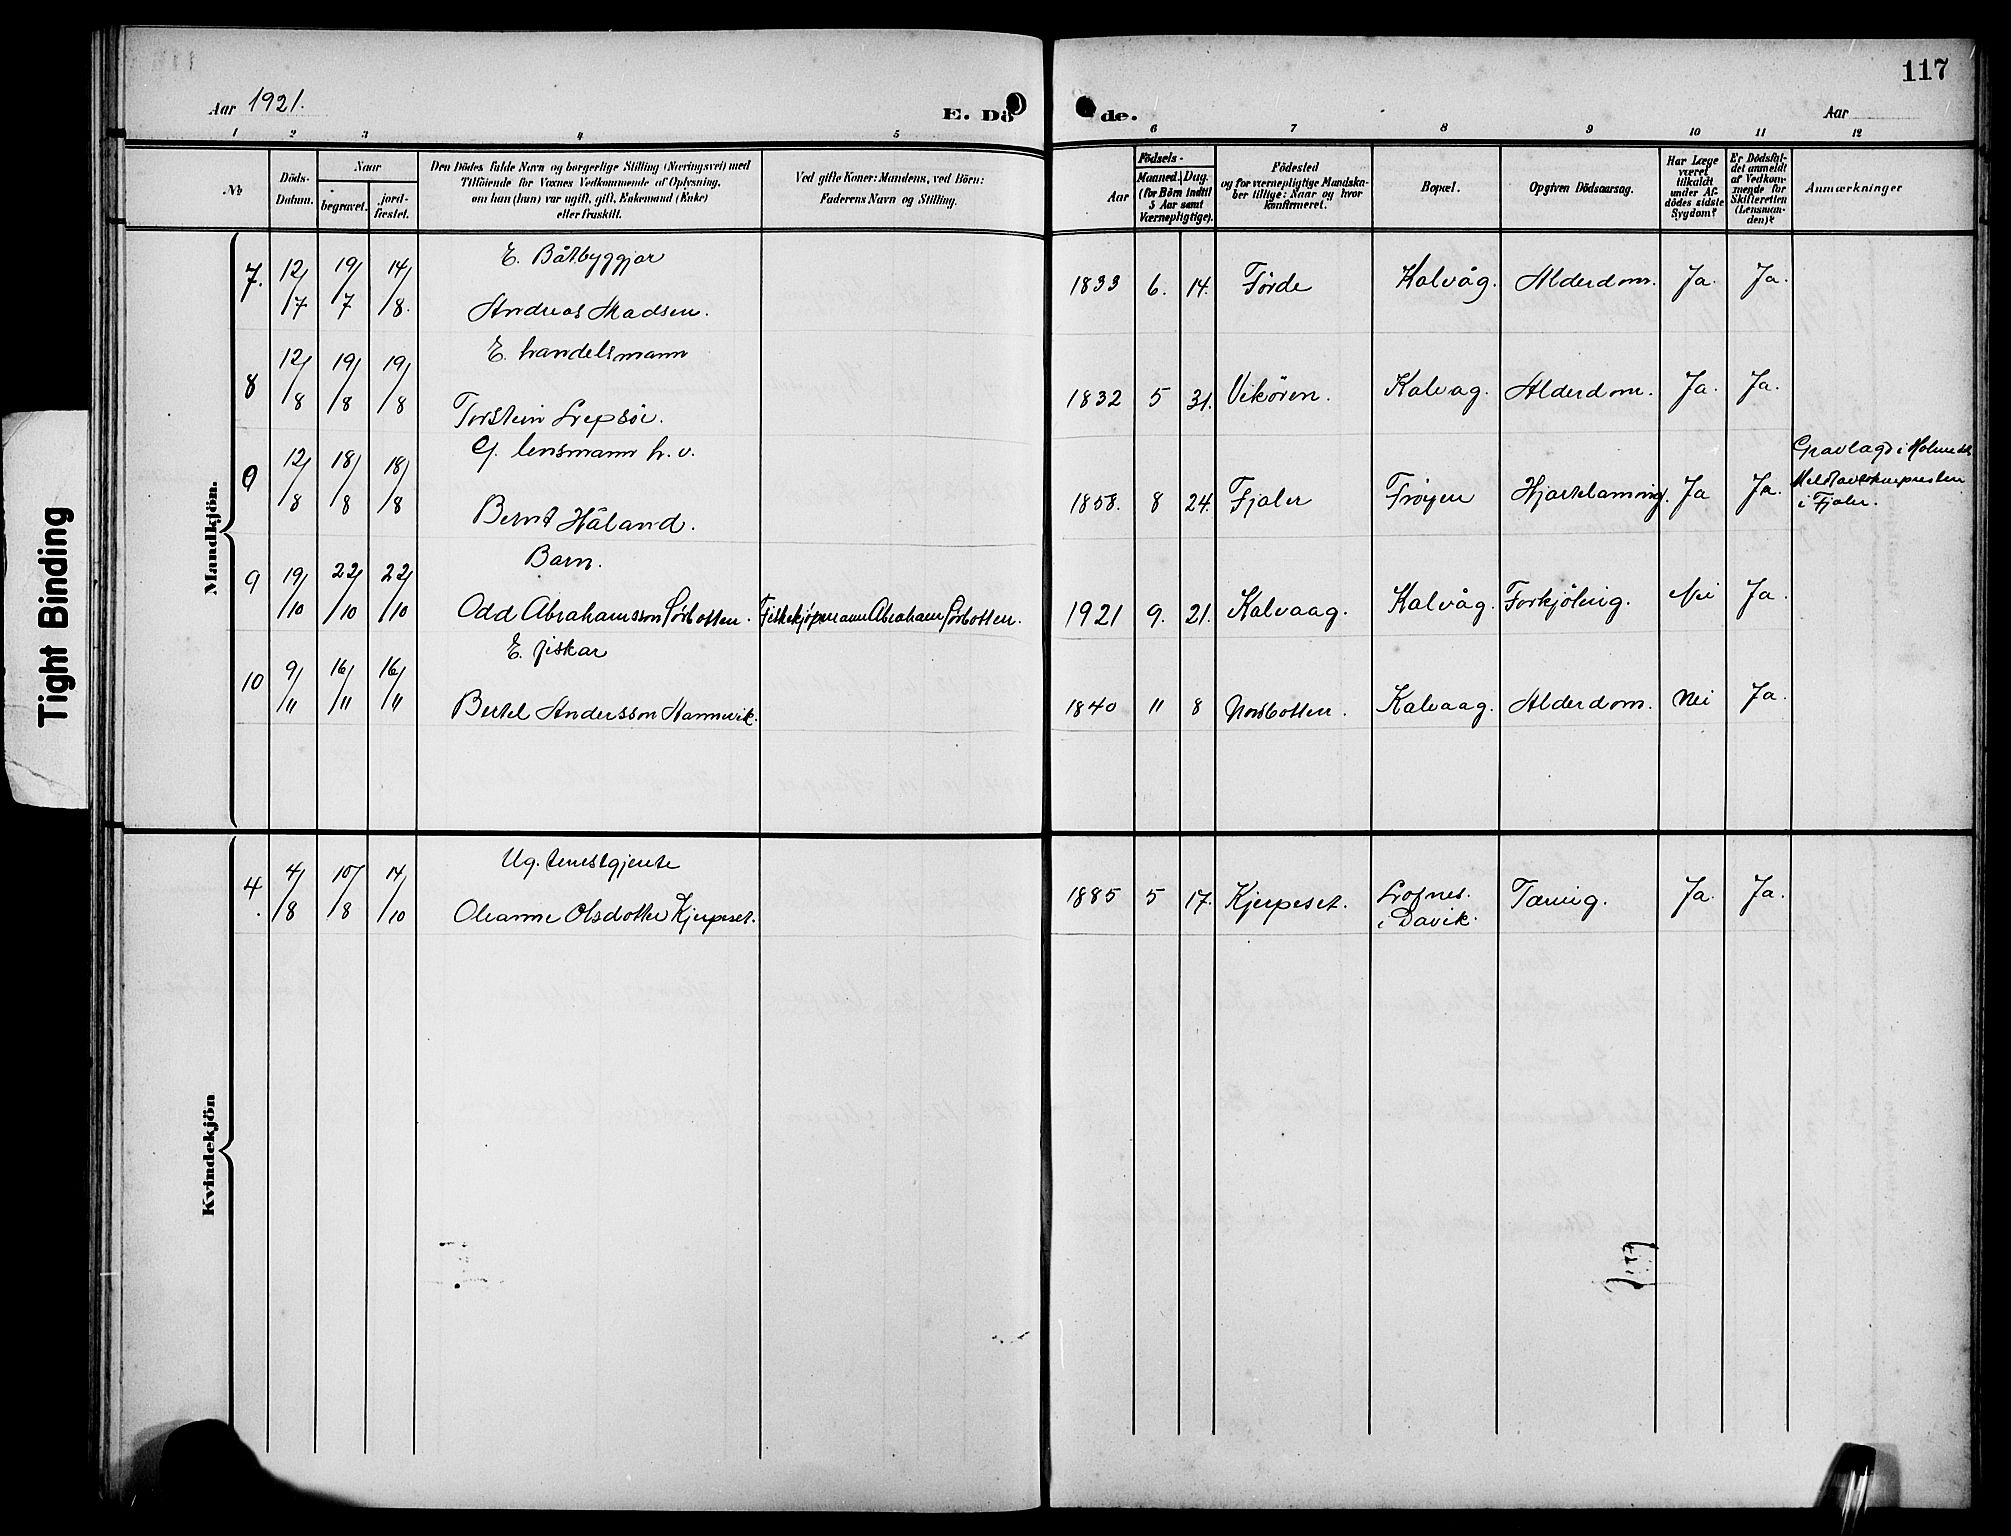 117
Aar 1921.
E. Dö de.
Aar
1 2 3 4 5 6 7 8 9 10 11 12
№
Döds-Datum.
Naar
begravet.
jord-fæstet.
Den Dödes fulde Navn og borgerlige Stilling (Næringsvei) med
Tilföiende for Voxnes Vedkommende af Oplysning,
om han (hun) var ugift, gift, Enkemand (Enke)
eller fraskilt.
Ved gifte Koner: Mandens, ved Börn:
Faderens Navn og Stilling.
Födsels-
Aar
Maaned. Dag.
(for Börn indtil
5 Aar samt
Værnepligtige).
Födested
og for værnepligtige Mandska-
ber tillige: Naar og hvor
konfirmeret.
Bopæl.
Opgiven Dödsaarsag.
Har Læge
været
tilkaldt
under Af-
dödes sidste
Sygdom?
Er Dödsfal-
det anmeldt
af Vedkom-
mende for
Skifteretten
(Lensman-
den)?
Anmærkninger
Mandkjön.
E. Båtbyggjar
7. 12/7 19/7 14/8. Andreas Madsen. 1833 6. 14. Førde Kalvåg. Alderdom. Ja. Ja.
E. handelsmann
8 12/8 19/8 19/8 Torstein Grepsøe. 1832 5 31. Vikören. Kalvag. Alderdom. Ja. Ja.
G. lensmann h. v.
9 12/8 18/8 18/8 Bernt Håland. 1858. 8 24. Fjaler Frøyen Hjartelaming. Ja Ja. Gravlagd i Holmedal
i Fjaler.
Barn.
9 19/10 22/10 22/10 Odd Abrahamsson Sørbotten. Fiskekjøpmann Abraham Sørbotten. 1921 9. 21. Kalvaag. Kalvåg. Forkjöling. Nei Ja.
E. fiskar
10 9/11 16/11 16/11 Bertel Andersson Hannevik. 1840 11 8 Nordbotten. Kalvaag. Alderdom. Nei Ja.
Kvindekjön
Ug. tenestgjente
4. 4/8 10/8 14/10 Oleanne Olsdotter Kjerpeset. 1885 5 17. Kjerpeset. i Davik. Tæring. Ja. Ja.
Tight Binding